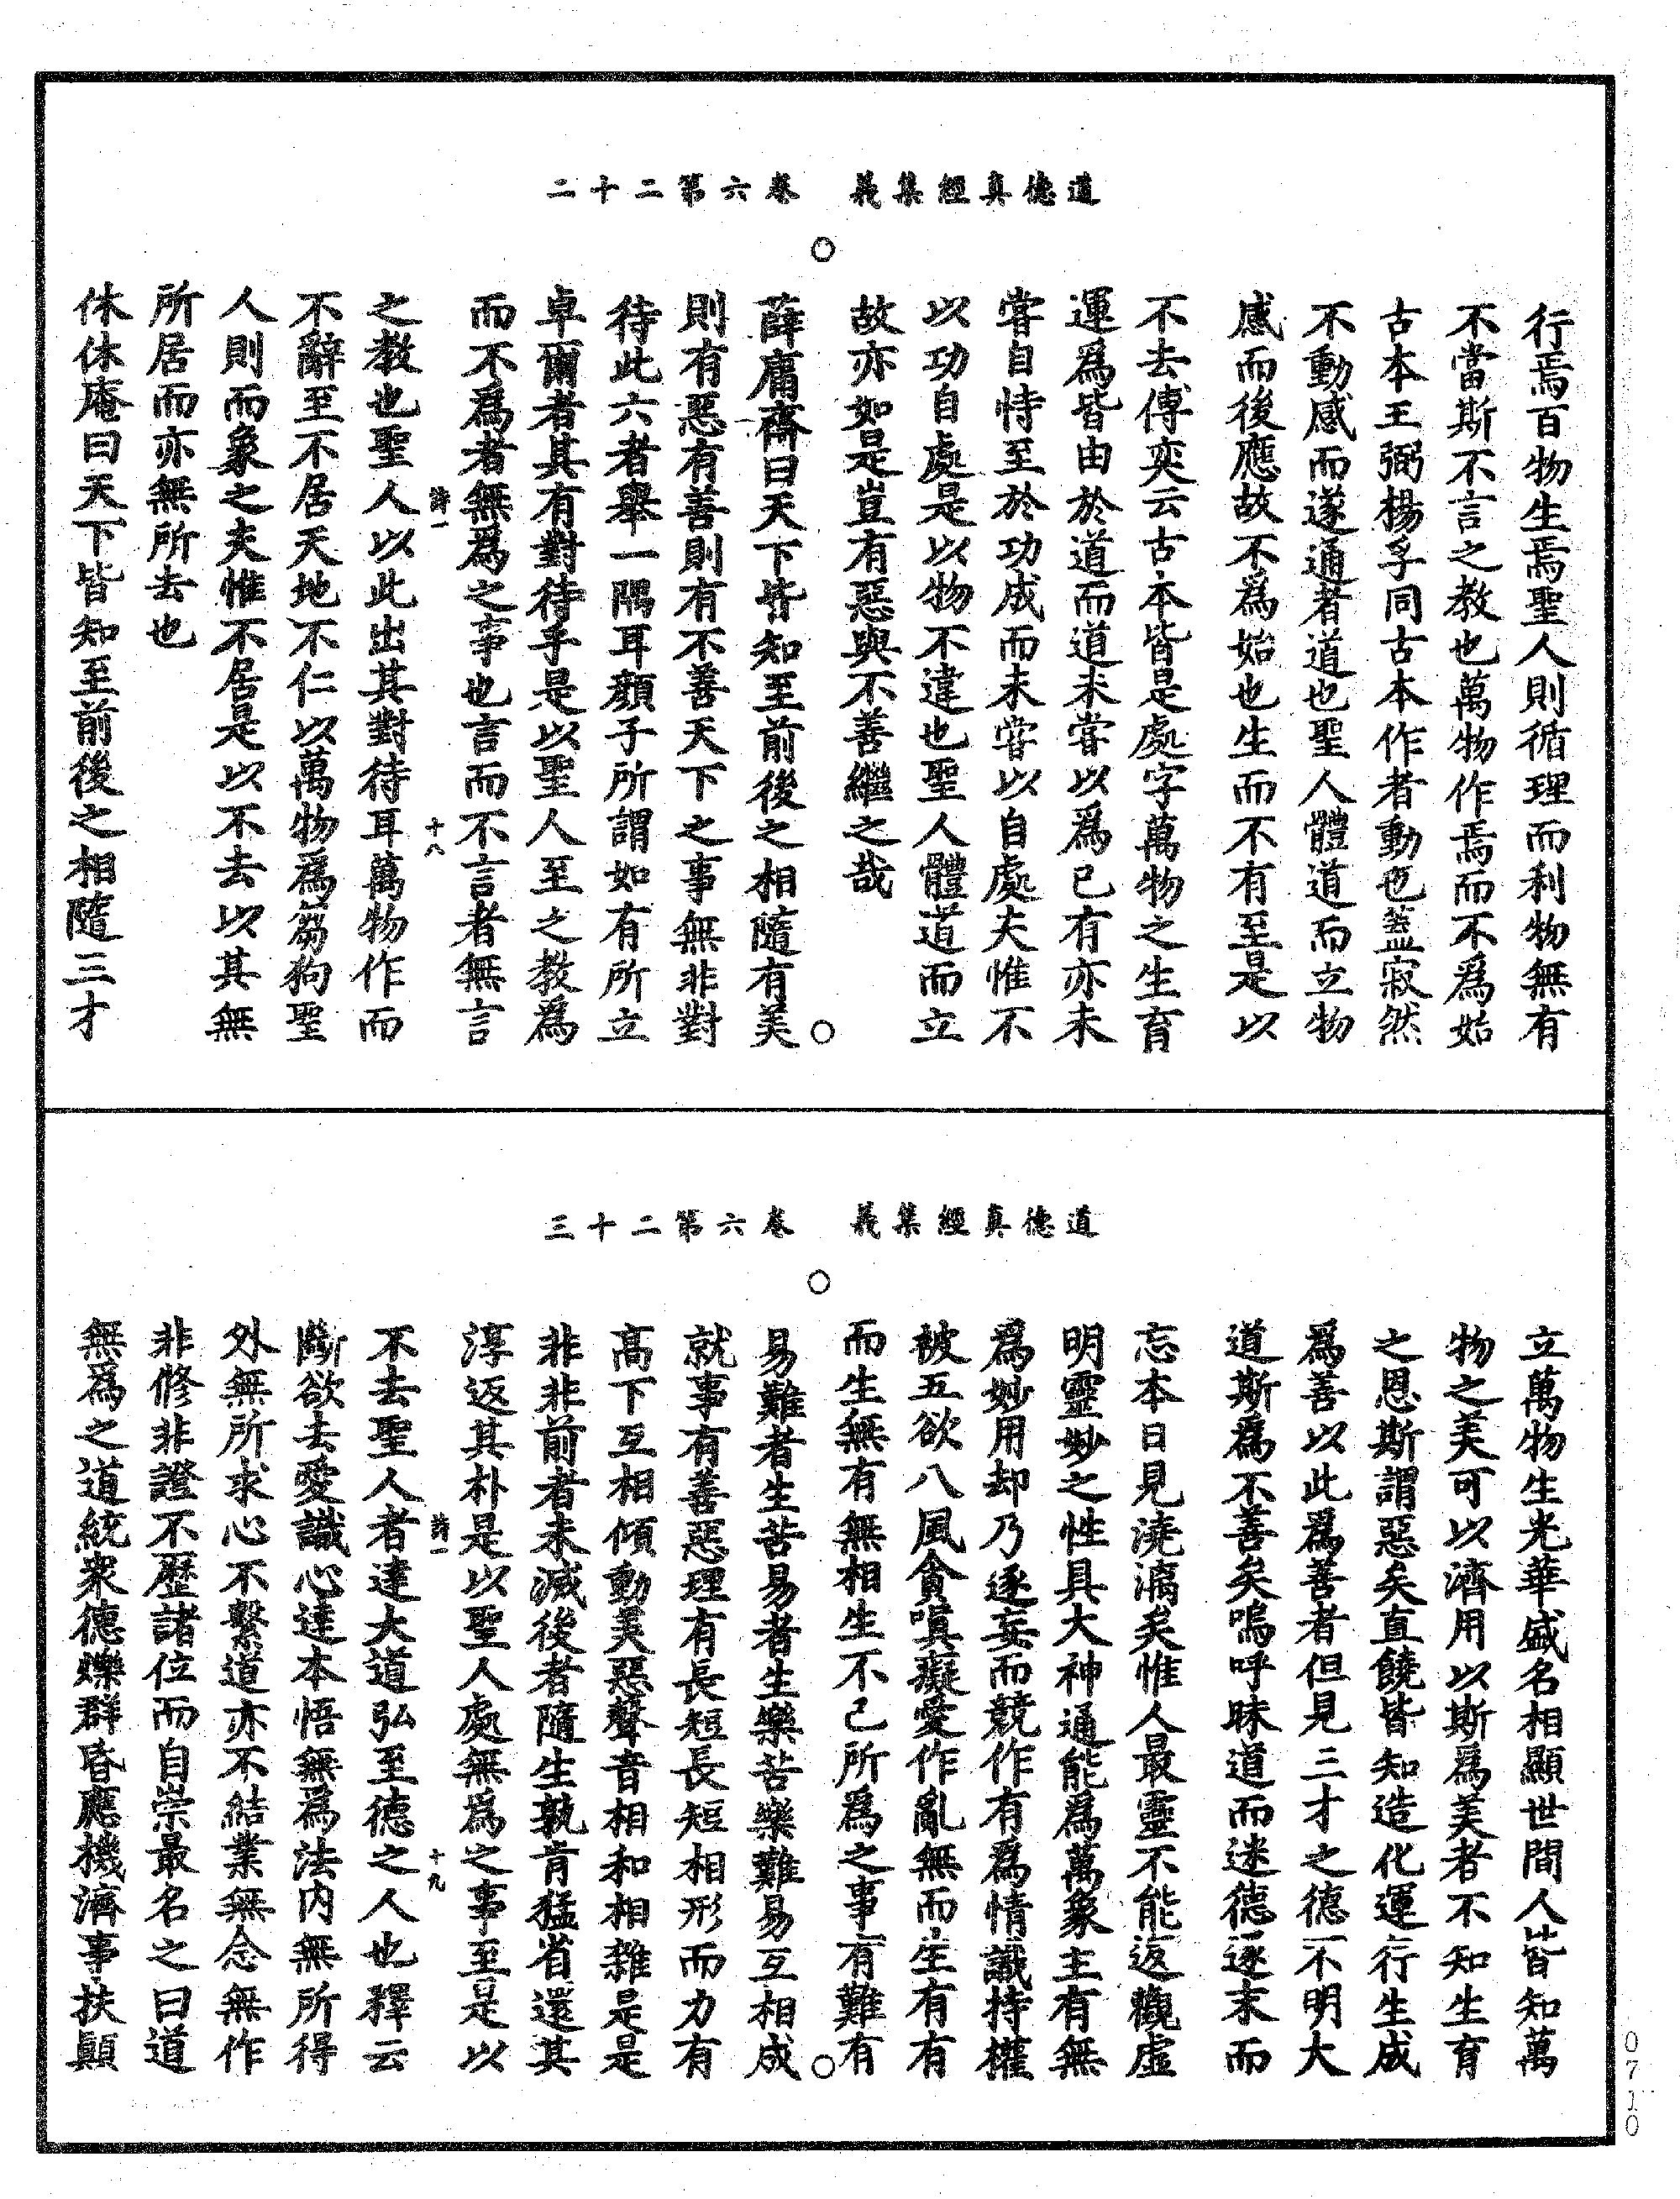 道德真經集義　卷六第二十二
行焉百物生焉聖人則循理而利物無有
不當斯不言之教也萬物作焉而不爲始
古本王弼楊孚同古本作者動也蓋寂然
不動感而遂通者道也聖人體道而立物
感而後應故不爲始也生而不有至是以
不去傳奕云古本皆是處字萬物之生育
運爲皆由於道而道未嘗以爲已有亦未
嘗自恃至於功成而未嘗以自處夫惟不
以功自處是以物不違也聖人體道而立
故亦如是豈有惡與不善繼之哉
薛庸齋曰天下皆知至前後之相隨有美
則有惡有善則有不善天下之事無非對
待此六者舉一隅耳顔子所謂如有所立
卓爾者其有對待乎是以聖人至之教爲
而不爲者無爲之事也言而不言者無言
詩一　十八
之教也聖人以此出其對待耳萬物作而
不辭至不居天地不仁以萬物爲芻狗聖
人則而象之夫惟不居是以不去以其無
所居而亦無所去也
休休庵曰天下皆知至前後之相隨三才
道德真經集義　卷六第二十三
立萬物生光華盛名相顯世間人皆知萬
物之美可以濟用以斯爲美者不知生育
之恩斯謂惡矣直饒皆知造化運行生成
爲善以此爲善者但見三才之德不明大
道斯爲不善矣嗚呼昧道而迷德逐末而
忘本日見澆漓矣惟人最靈不能返觀虛
明靈妙之性具大神通能爲萬象主有無
爲妙用却乃逐妄而競作有爲情識持權
被五欲八風貪嗔癡愛作亂無而生有有
而生無有無相生不已所爲之事有難有
易難者生苦易者生樂苦樂難易互相成
就事有善惡理有長短長短相形而力有
高下互相傾動美惡聲音相和相雜是是
非非前者未滅後者隨生孰肯猛省還其
淳返其朴是以聖人處無爲之事至是以
詩一　十九
不去聖人者達大道弘至德之人也釋云
斷欲去愛識心達本悟無爲法内無所得
外無所求心不繫道亦不結業無念無作
非修非證不歷諸位而自崇最名之曰道
無爲之道統衆德爍群昏應機濟事扶顛
0710